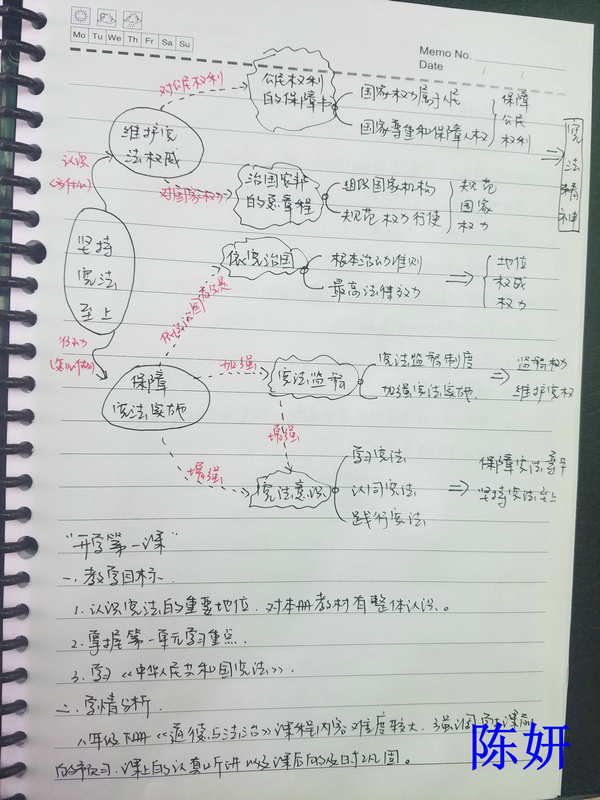 Mo Tu We Th Fr Sa Su
Memo No.
Date / /
对公民权利
公民权利
的保障书
国家权力属于人民
国家尊重和保障人权
保障
公民
权利
宪法精神
维护宪
法权威
认识
(为什么)
对国家权力
治国安邦
的总章程
组织国家机构
规范权力行使
规范
国家
权力
坚持
宪法
至上
依宪治国
根本活动准则
最高法律效力
地位
权威
权力
行动
(怎么做)
保障
宪法实施
加强
宪法监督
宪法监督制度
加强宪法实施
监督权力
维护宪权
增强
增强
宪法意识
学习宪法
认同宪法
践行宪法
保障宪法尊严
坚持宪法至上
"开学第一课"
一.教学目标.
1.认识宪法的重要地位.对本册教材有整体认识。
2.掌握第一单元学习重点.
3.学习《中华人民共和国宪法》.
二.学情分析.
八年级下册《道德与法治》课程内容难度较大.强调学生课前
的预习.课上的认真听讲以及课后的及时巩固。
陈妍